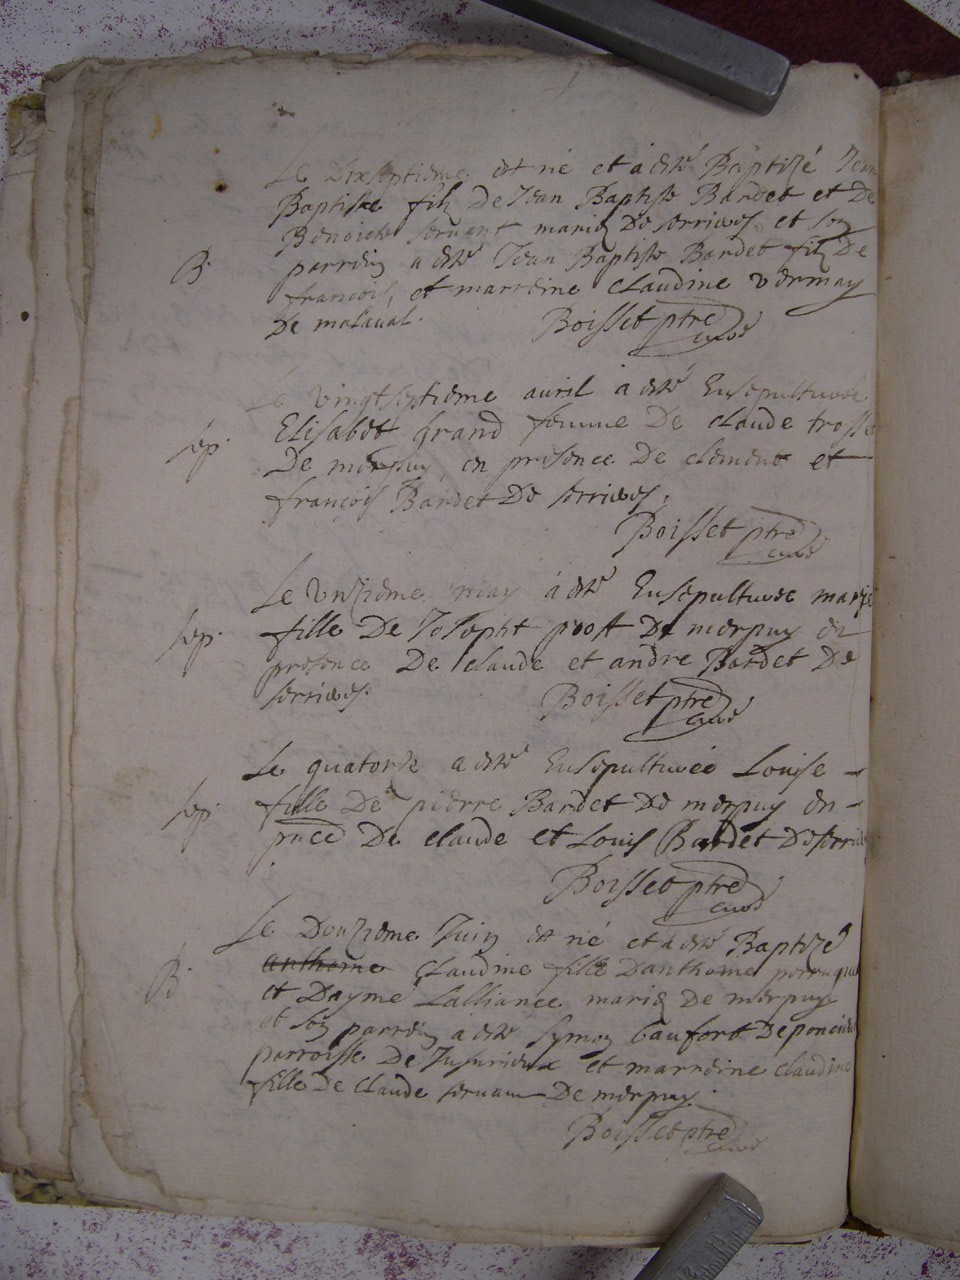 Le Dixseptieme est né et a esté Baptizé Jean
Baptiste filz De Jean Baptiste Bardet et De
Benoiete servant mariez De serrieres et son
B. parrein a esté Jean Baptiste Bardet filz De
francois, et marreine claudine vermay
De malaval. Boisset ptre curé
Le vingtseptieme auril a esté Ensepulturée
sep. Elisabet grand femme De claude trosset
De merpuy en presence De clement et
françois Bardet De serrieres.
Boisset ptre curé
Le vnzieme may a esté Ensepulturee marie
sep. fille De Joseph prost De merpuy en
presence De claude et andre Bardet De
serrieres. Boisset ptre curé
Le quatorze a esté Ensepulturée Louise
sep. fille De pierre Bardet De merpuy en
pnce De claude et Louis Bardet De
Boisset ptre curé
Le Douzieme Juin est né et a esté Baptizé
B. anthome claudine fille Danthome
et Dayme Lalliance mariez De merpuy
et son parrein a esté symon Caufort De
parroisse De Jusurieux et marreine claudine
fille De claude servant De merpuy.
Boisset ptre curé